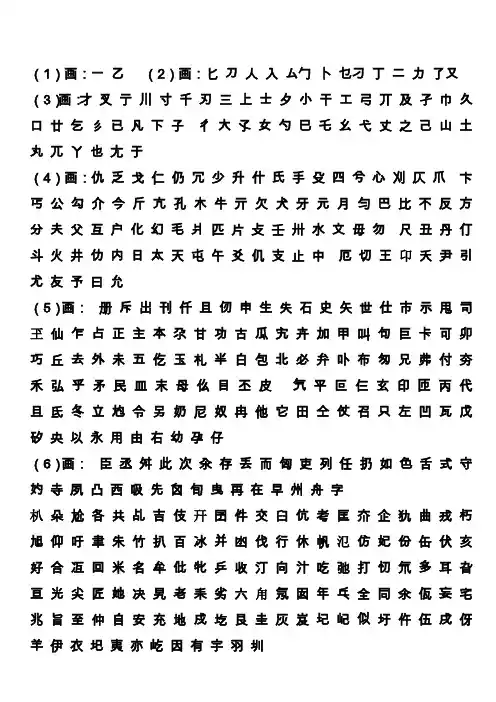 (1)画:一 乙 (2)画:匕 刀 人 入 厶 勹 卜 乜 刁 丁 二 力 了 又
(3)画:才 叉 亍 川 寸 千 刃 三 上 士 夕 小 干 工 弓 丌 及 孑 巾 久
口 廿 乞 彡 已 凡 下 子 彳 大 孓 女 勺 巳 乇 幺 弋 丈 之 己 山 土
丸 兀 丫 也 尢 于
(4)画:仇 乏 戈 仁 仍 冗 少 升 什 氏 手 殳 四 兮 心 刈 仄 爪 卞
丐 公 勾 介 今 斤 亢 孔 木 牛 亓 欠 犬 牙 元 月 匀 巴 比 不 反 方
分 夫 父 互 户 化 幻 毛 爿 匹 片 攴 壬 卅 水 文 毋 勿 尺 丑 丹 仃
斗 火 井 仂 内 日 太 天 屯 午 爻 仉 支 止 中 厄 切 王 卬 夭 尹 引
尤 友 予 曰 允
(5)画: 册 斥 出 刊 仟 且 仞 申 生 失 石 史 矢 世 仕 市 示 甩 司
玊 仙 乍 占 正 主 本 尕 甘 功 古 瓜 宄 卉 加 甲 叫 句 巨 卡 可 卯
巧 丘 去 外 未 五 仡 玉 札 半 白 包 北 必 弁 卟 布 匆 兄 弗 付 夯
禾 弘 乎 矛 民 皿 末 母 仫 目 丕 皮 氕 平 叵 仨 玄 印 匝 丙 代
旦 氐 冬 立 尥 令 另 奶 尼 奴 冉 他 它 田 仝 仗 召 只 左 凹 瓦 戊
矽 央 以 永 用 由 右 幼 孕 仔
(6)画: 臣 丞 舛 此 次 汆 存 丢 而 匈 吏 列 任 扔 如 色 舌 式 守
妁 寺 夙 凸 西 吸 先 囟 旬 曳 再 在 早 州 舟 字
朳 朵 尬 各 共 乩 吉 伎 幵 囝 件 交 臼 伉 考 匡 夼 企 犰 曲 戎 朽
旭 仰 吁 聿 朱 竹 扒 百 冰 并 凼 伐 行 休 帆 氾 仿 妃 份 缶 伏 亥
好 合 冱 回 米 名 牟 仳 牝 乒 收 汀 向 汁 吃 弛 打 忉 氘 多 耳 旮
亘 光 尖 匠 地 决 旯 老 耒 劣 六 甪 氖 囡 年 乓 全 同 氽 佤 妄 宅
兆 旨 至 仲 自 安 充 地 戍 圪 艮 圭 灰 岌 圮 屺 似 圩 仵 伍 戌 伢
羊 伊 衣 圯 夷 亦 屹 因 有 宇 羽 圳